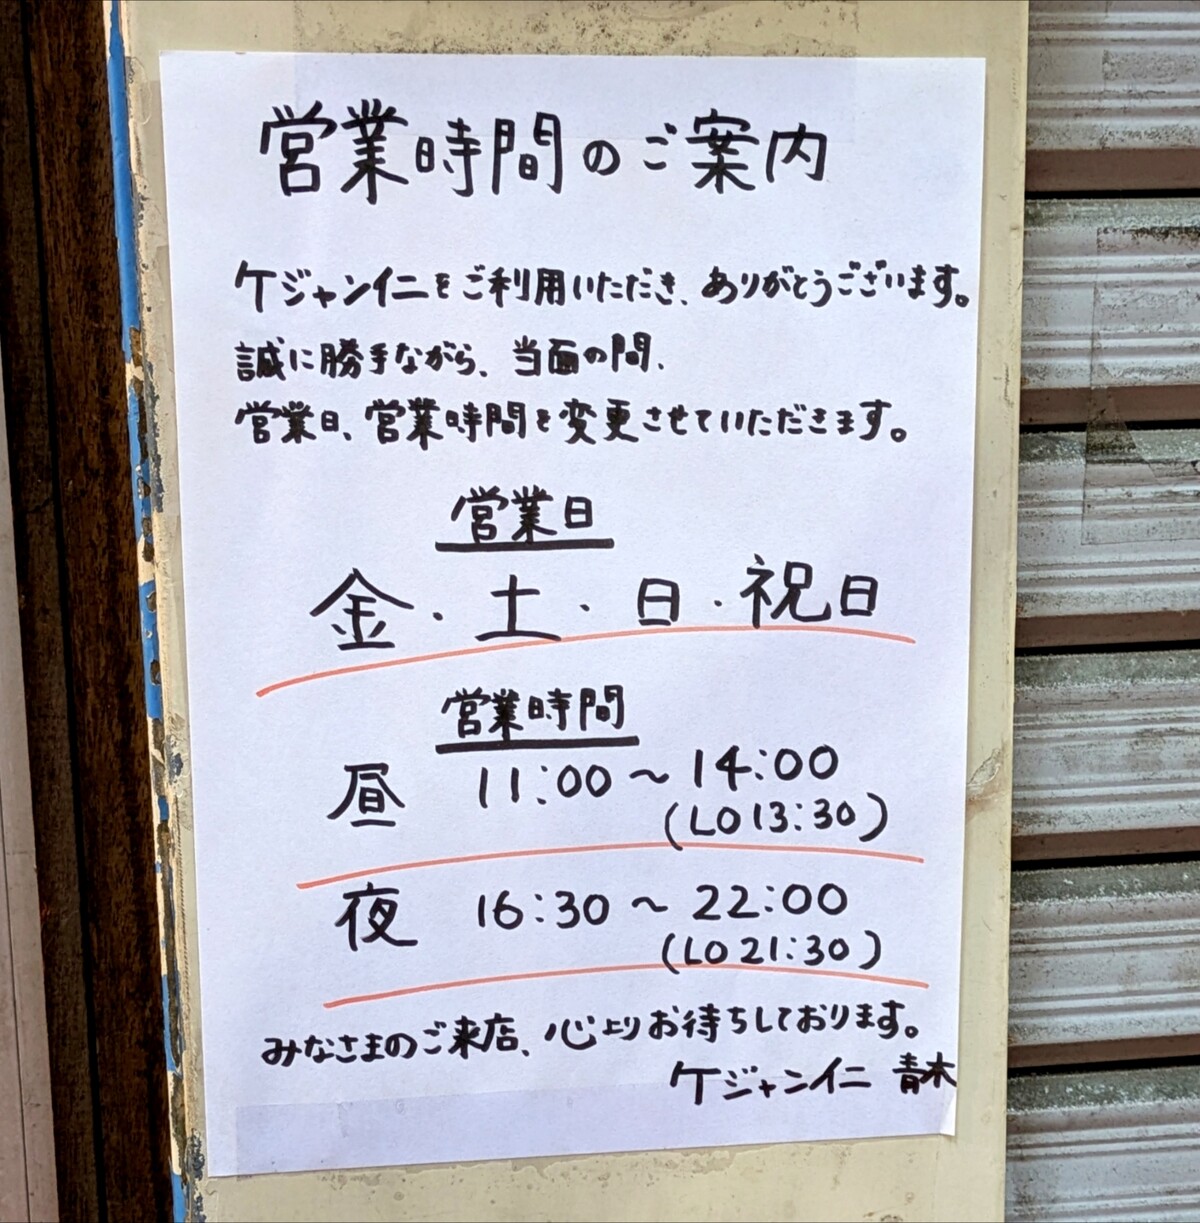 営業時間のご案内
ケジャンイニをご利用いただき、ありがとうございます。
誠に勝手ながら、当面の間、
営業日、営業時間を変更させていただきます。
営業日
金・土・日・祝日
営業時間
昼 11:00～14:00
(LO 13:30)
夜 16:30～22:00
(LO 21:30)
みなさまのご来店、心よりお待ちしております。
ケジャンイニ 青木